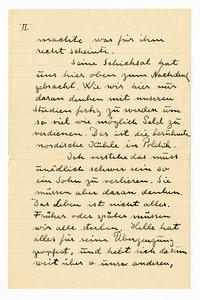 II
machte was für ihm
recht scheinte.
Seine Schicksal hat
uns hier oben zum Nachdenk
gebracht. Wie wir hier nur
daran denken mit unseren
Studien fertig zu werden um
so viel wie möglich Geld zu
verdienen. Das ist die berühmte
nordische Kühle in Politik.
Ich verstehe das muss
unendlich schwer sein so
ein Sohn zu verlieren. Sie
müssen aber daran denken.
Das Leben ist nicht alles.
Früher oder später müssen
wir alle sterben. Helle hat
alles für seine Überzeugung
geopfert, und hebt sich darum
weit über uns andere,